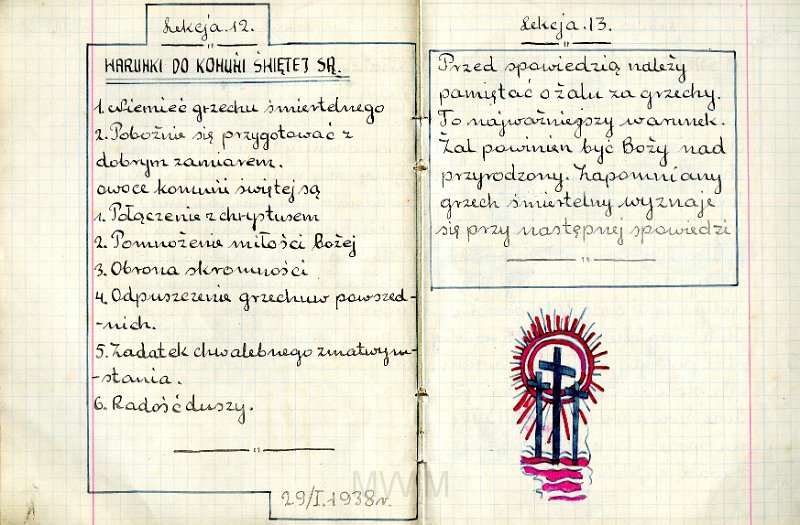 Lekcja.12.
WARUNKI DO KOMUNI ŚWIĘTEJ SĄ.
1. Niemieć grzechu śmiertelnego
2. Pobożnie się przygotować z
dobrym zamiarem.
owoce komunii świętej są
1. Połączenie z chrystusem
2. Pomnożenie miłości Bożej
3. Obrona skromności
4. Odpuszczenie grzechuw powszed-
-nich.
5. Zadatek chwalebnego zmatwym-
-stania.
6. Radość duszy.
29/I.1938r.
MWM
Lekcja.13.
Przed spowiedzią należy
pamiętać o żalu za grzechy.
To najważniejszy warunek.
Żal powinien być Boży nad
przyrodzony. Zapomniany
grzech śmiertelny wyznaje
się przy następnej spowiedzi